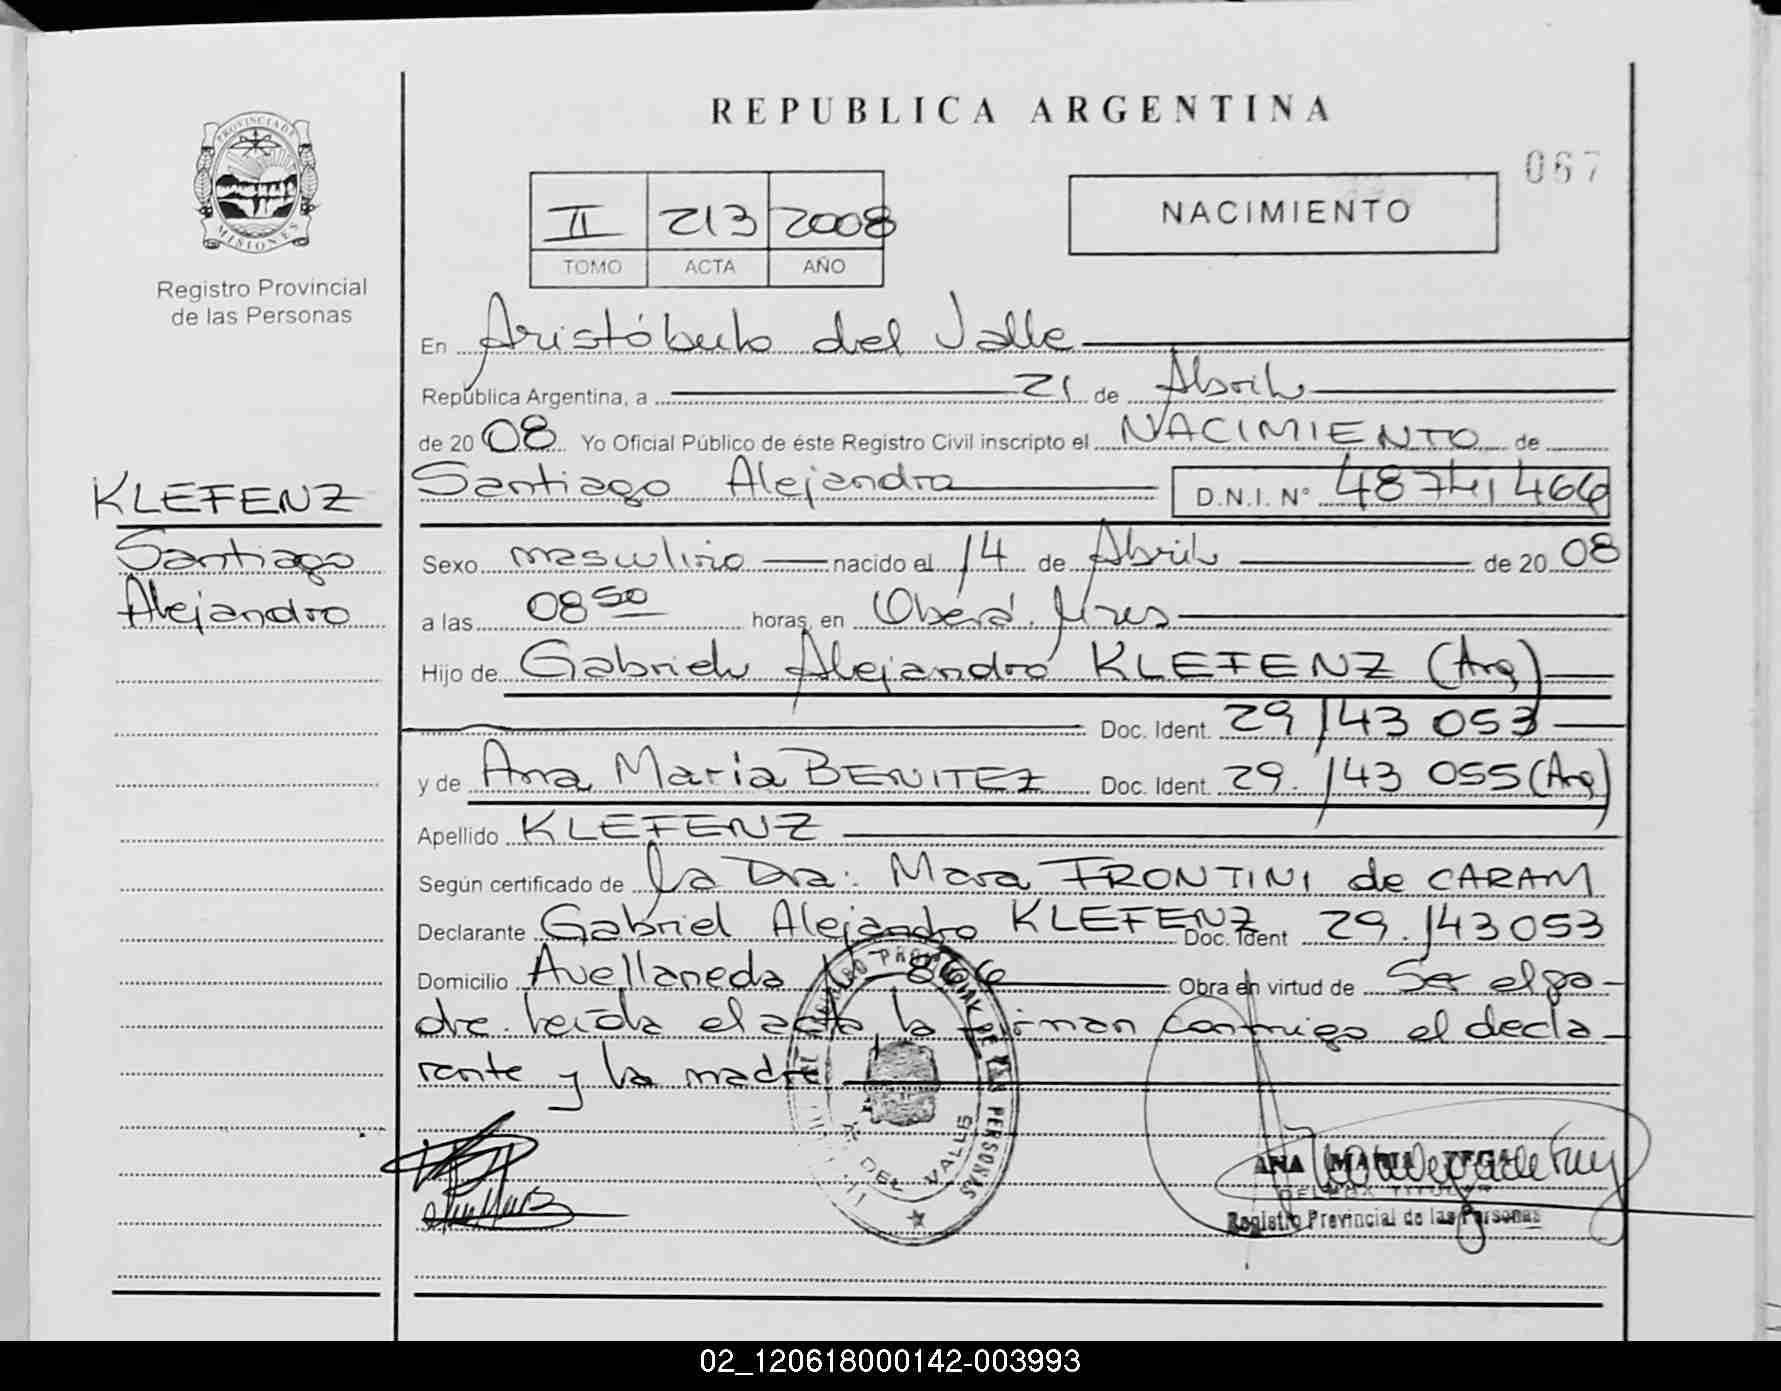 REPUBLICA ARGENTINA
067
PROVINCIA DE MISIONES
Registro Provincial
de las Personas
II 213 2008
TOMO ACTA AÑO
NACIMIENTO
En Aristóbulo del Valle
República Argentina, a 21 de Abril
de 20 08 Yo Oficial Público de éste Registro Civil inscripto el NACIMIENTO de
Santiago Alejandro D.N.I. N° 48741466
KLEFENZ
Santiago
Alejandro
Sexo masculino nacido el 14 de Abril de 20 08
a las 08 50 horas, en Oberá. Mnes
Hijo de Gabriel Alejandro KLEFENZ (Arg)
Doc. Ident. 29 143 053
y de Ana María BENITEZ Doc. Ident. 29. 143 055 (Arg)
Apellido KLEFENZ
Según certificado de la Dra: Mara FRONTINI de CARAM
Declarante Gabriel Alejandro KLEFENZ Doc. Ident 29. 143 053
Domicilio Avellaneda 866 Obra en virtud de Ser el pa-
dre. leída el acta la firman conmigo el decla-
rante y la madre
DEL VALLE
ANA MARIA
TITULAR
Registro Provincial de las Personas
02_120618000142-003993